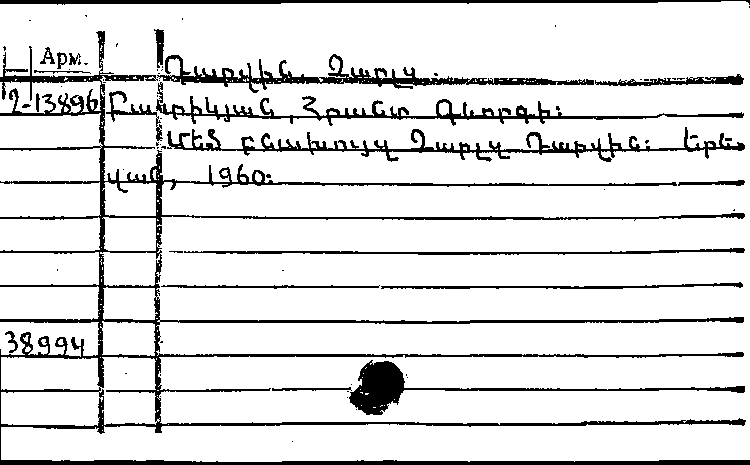 Арм.
Դարվին, Չարլզ.
2-13896 Բատիկյան, Հրանտ Գևորգի:
Մեծ բնախույզ Չարլզ Դարվին: Երե-
վան, 1960:
38994